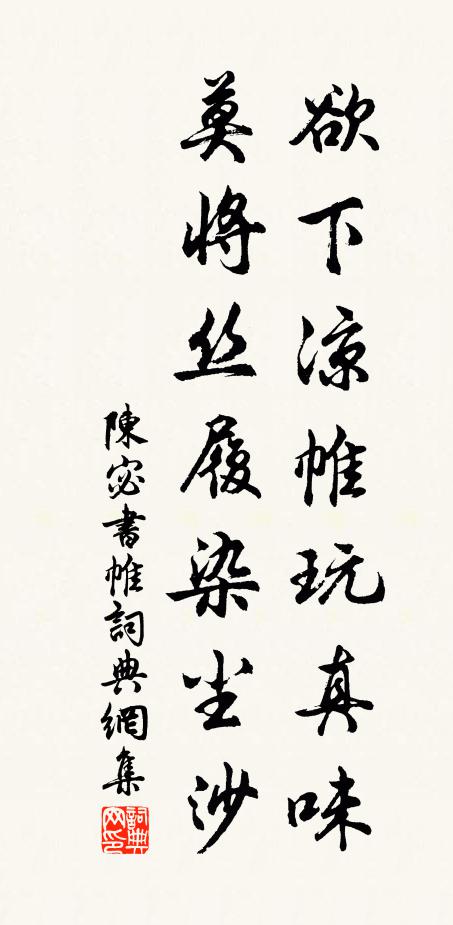 欲下涼帷玩真味
莫將丝履染尘沙
陳宓書帷詞典網集
詞典网印